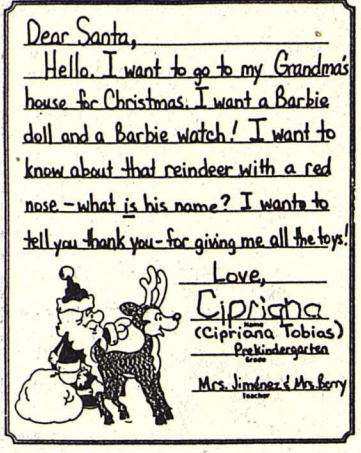 Dear Santa,
Hello. I want to go to my Grandma's
house for Christmas. I want a Barbie
doll and a Barbie watch! I want to
know about that reindeer with a red
nose - what is his name? I want to
tell you thank you - for giving me all the toys!
Love,
Cipriana
Name
(Cipriana Tobias)
Prekindergarten
Grade
Mrs. Jiménez & Mrs. Berry
Teacher